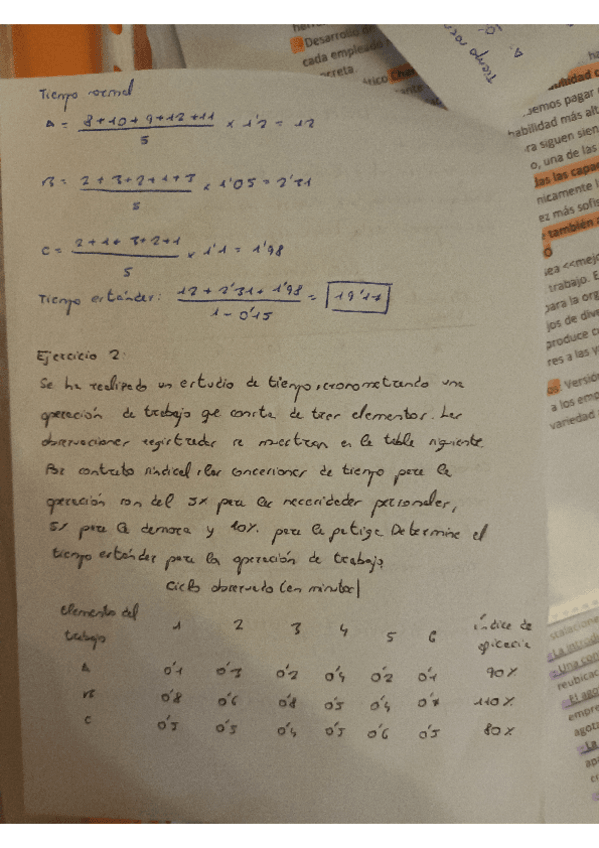 Tiempo normal
A = 8+10+9+12+11 / 5 × 1'2 = 12
B = 2+3+2+1+3 / 5 × 1'05 = 2'31
C = 2+1+3+2+1 / 5 × 1'1 = 1'98
Tiempo estánder: 12 + 2'31 + 1'98 / 1 - 0'15 = 19'17
Ejercicio 2:
Se ha realizado un estudio de tiempo, cronometrando una
operación de trabajo que consta de tres elementos. Las
observaciones registradas se muestran en la tabla siguiente
Por contrato sindical, las concesiones de tiempo para la
operación son del 3% para las necesidades personales,
5% para la demora y 10% para la fatiga. Determine el
tiempo estánder para la operación de trabajo
Ciclo observado (en minutos)
Elementos del trabajo 1 2 3 4 5 6 índice de eficacia
A 0'1 0'3 0'2 0'4 0'2 0'1 90%
B 0'8 0'6 0'8 0'5 0'4 0'7 110%
C 0'5 0'5 0'4 0'5 0'6 0'5 80%
Desarrollo
cada empleado
Tiempo
A:
demos pagar
habilidad más alt
ra siguen sien
o, una de las
las las capac
nicamente l
ez más sofis
también a
sea <<mejo
trabajo. E
para la org
jos de dive
produce c
res a las y
Versión
a los emp
variedad
stalacione
La introdu
Una con
reubicac
El ago
empre
agota
La